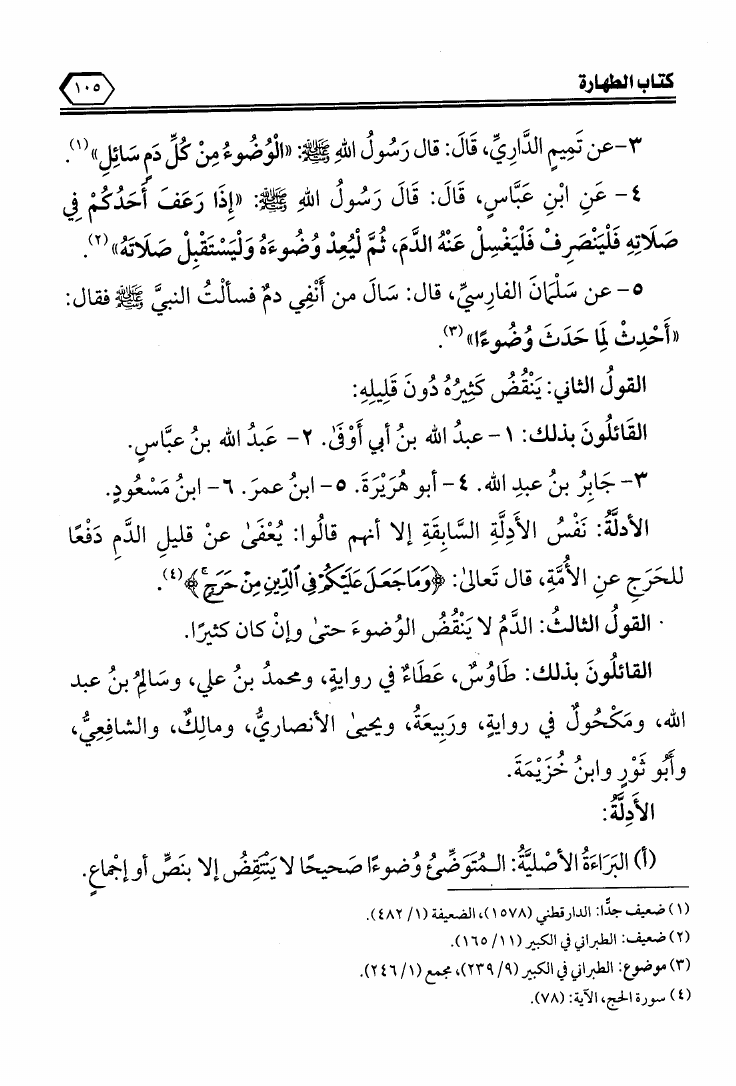 كتاب الطهارة
١٠٥
٣- عن تَمِيمٍ الدَّارِيِّ، قَالَ: قال رَسُولُ اللهِ ﷺ: «الْوُضُوءُ مِنْ كُلِّ دَمٍ سَائِلٍ»(١).
٤- عَنِ ابْنِ عَبَّاسٍ، قَالَ: قَالَ رَسُولُ اللهِ ﷺ: «إِذَا رَعَفَ أَحَدُكُمْ فِي
صَلَاتِهِ فَلْيَنْصَرِفْ فَلْيَغْسِلْ عَنْهُ الدَّمَ، ثُمَّ لْيُعِدْ وُضُوءَهُ وَلْيَسْتَقْبِلْ صَلَاتَهُ»(٢).
٥- عن سَلْمَانَ الفارسيِّ، قال: سَالَ من أَنْفِي دمٌ فسألْتُ النبيَّ ﷺ فقال:
«أَحْدِثْ لِمَا حَدَثَ وُضُوءًا»(٣).
القولُ الثاني: يَنْقُضُ كَثِيرُهُ دُونَ قَلِيلِهِ:
القَائلُونَ بذلك: ١- عبدُ الله بنُ أبي أَوْفَىٰ. ٢- عَبدُ الله بنُ عبَّاسٍ.
٣- جَابِرُ بنُ عبدِ الله. ٤- أبو هُرَيْرَةَ. ٥- ابنُ عمرَ. ٦- ابنُ مَسْعُودٍ.
الأدلَّةُ: نَفْسُ الأَدِلَّةِ السَّابِقَةِ إلا أنهم قالُوا: يُعْفَىٰ عنْ قليلِ الدَّمِ دَفْعًا
للحَرَجِ عنِ الأُمَّةِ، قال تَعالىٰ: ﴿وَمَا جَعَلَ عَلَيْكُمْ فِي ٱلدِّينِ مِنْ حَرَجٍ ۚ﴾(٤).
القولُ الثالثُ: الدَّمُ لا يَنْقُضُ الوُضوءَ حتىٰ وإنْ كان كثيرًا.
القائلُونَ بذلك: طَاوُسٌ، عَطَاءٌ في روايةٍ، ومحمدُ بنُ علي، وسَالِمُ بنُ عبد
الله، ومَكْحُولٌ في روايةٍ، ورَبِيعَةُ، ويحيىٰ الأنصاريُّ، ومالِكٌ، والشافِعِيُّ،
وأَبُو ثَوْرٍ وابنُ خُزَيْمَةَ.
الأَدِلَّةُ:
(أ) البَرَاءَةُ الأَصْلِيَّةُ: المُتَوَضِّئُ وُضوءًا صَحيحًا لا يَنْتَقِضُ إلا بنَصٍّ أو إجْماعٍ.
(١) ضعيف جدًّا: الدارقطني (١٥٧٨)، الضعيفة (١/ ٤٨٢).
(٢) ضعيف: الطبراني في الكبير (١١/ ١٦٥).
(٣) موضوع: الطبراني في الكبير (٩/ ٢٣٩)، مجمع (١/ ٢٤٦).
(٤) سورة الحج، الآية: (٧٨).